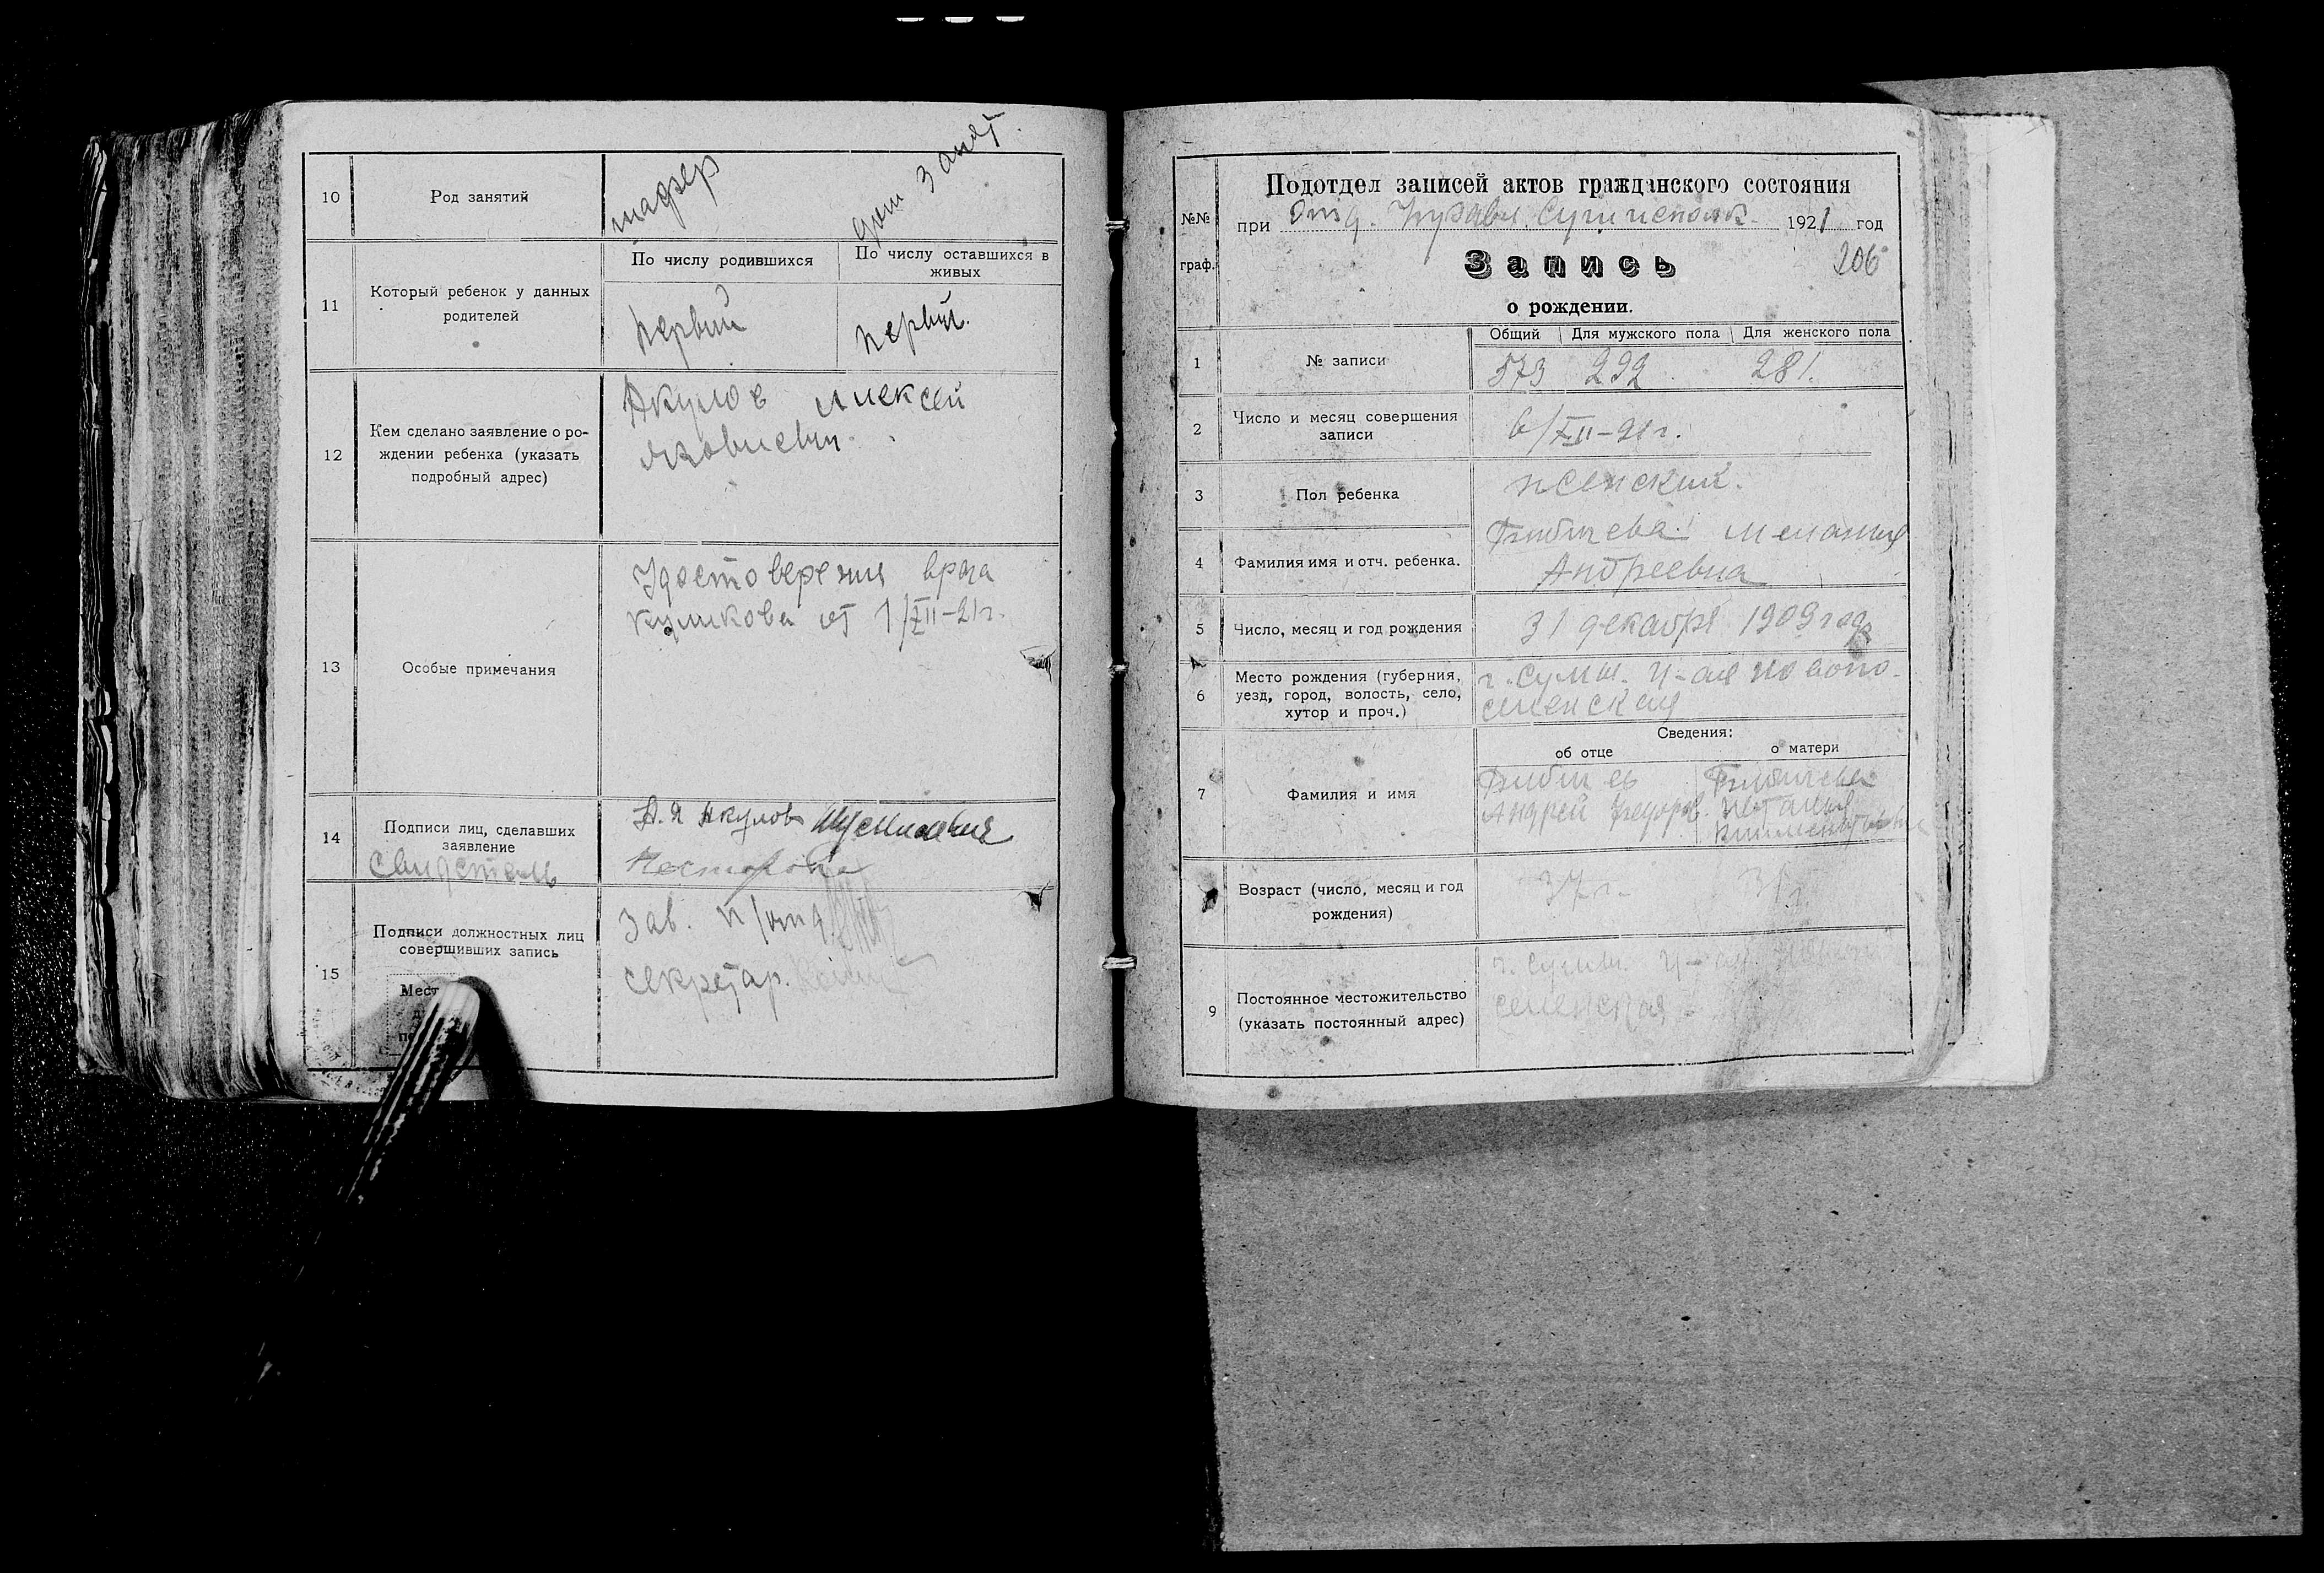 10
Род занятий
шафер
дом 3 анят.
11
Который ребенок у данных
родителей
По числу родившихся
По числу оставшихся в
живых
первий
первій.
12
Кем сделано заявление о ро-
ждении ребенка (указать
подробный адрес)
Акулов Алексей
Яковлевич.
13
Особые примечания
Удостоверения врача
Куликова от 1/XII-21г.
14
Подписи лиц, сделавших
заявление
Свидетель
А. Я Акулов
Нестерова
15
Подписи должностных лиц
совершивших запись
Мест
Зав. п/отд.
секретар.
№№
граф.
Подотдел записей актов гражданского состояния
при Отд. Управл. 1921 год
Запись
206
о рождении.
1
№ записи
Общий
Для мужского пола
Для женского пола
573
292
281.
2
Число и месяц совершения
записи
6/XII-21г.
3
Пол ребенка
женский.
4
Фамилия имя и отч. ребенка.
Мелания
Андреевна
5
Число, месяц и год рождения
31 декабря 1909 года
6
Место рождения (губерния,
уезд, город, волость, село,
хутор и проч.)
г. Сумы. у-ая Новосе-
ленская
Сведения:
об отце
о матери
7
Фамилия и имя
Андрей Федоров.
Наталья
Климентьевна
Возраст (число, месяц и год
рождения)
37 г.
31 г.
9
Постоянное местожительство
(указать постоянный адрес)
г. Сумы. у-ая
селенская